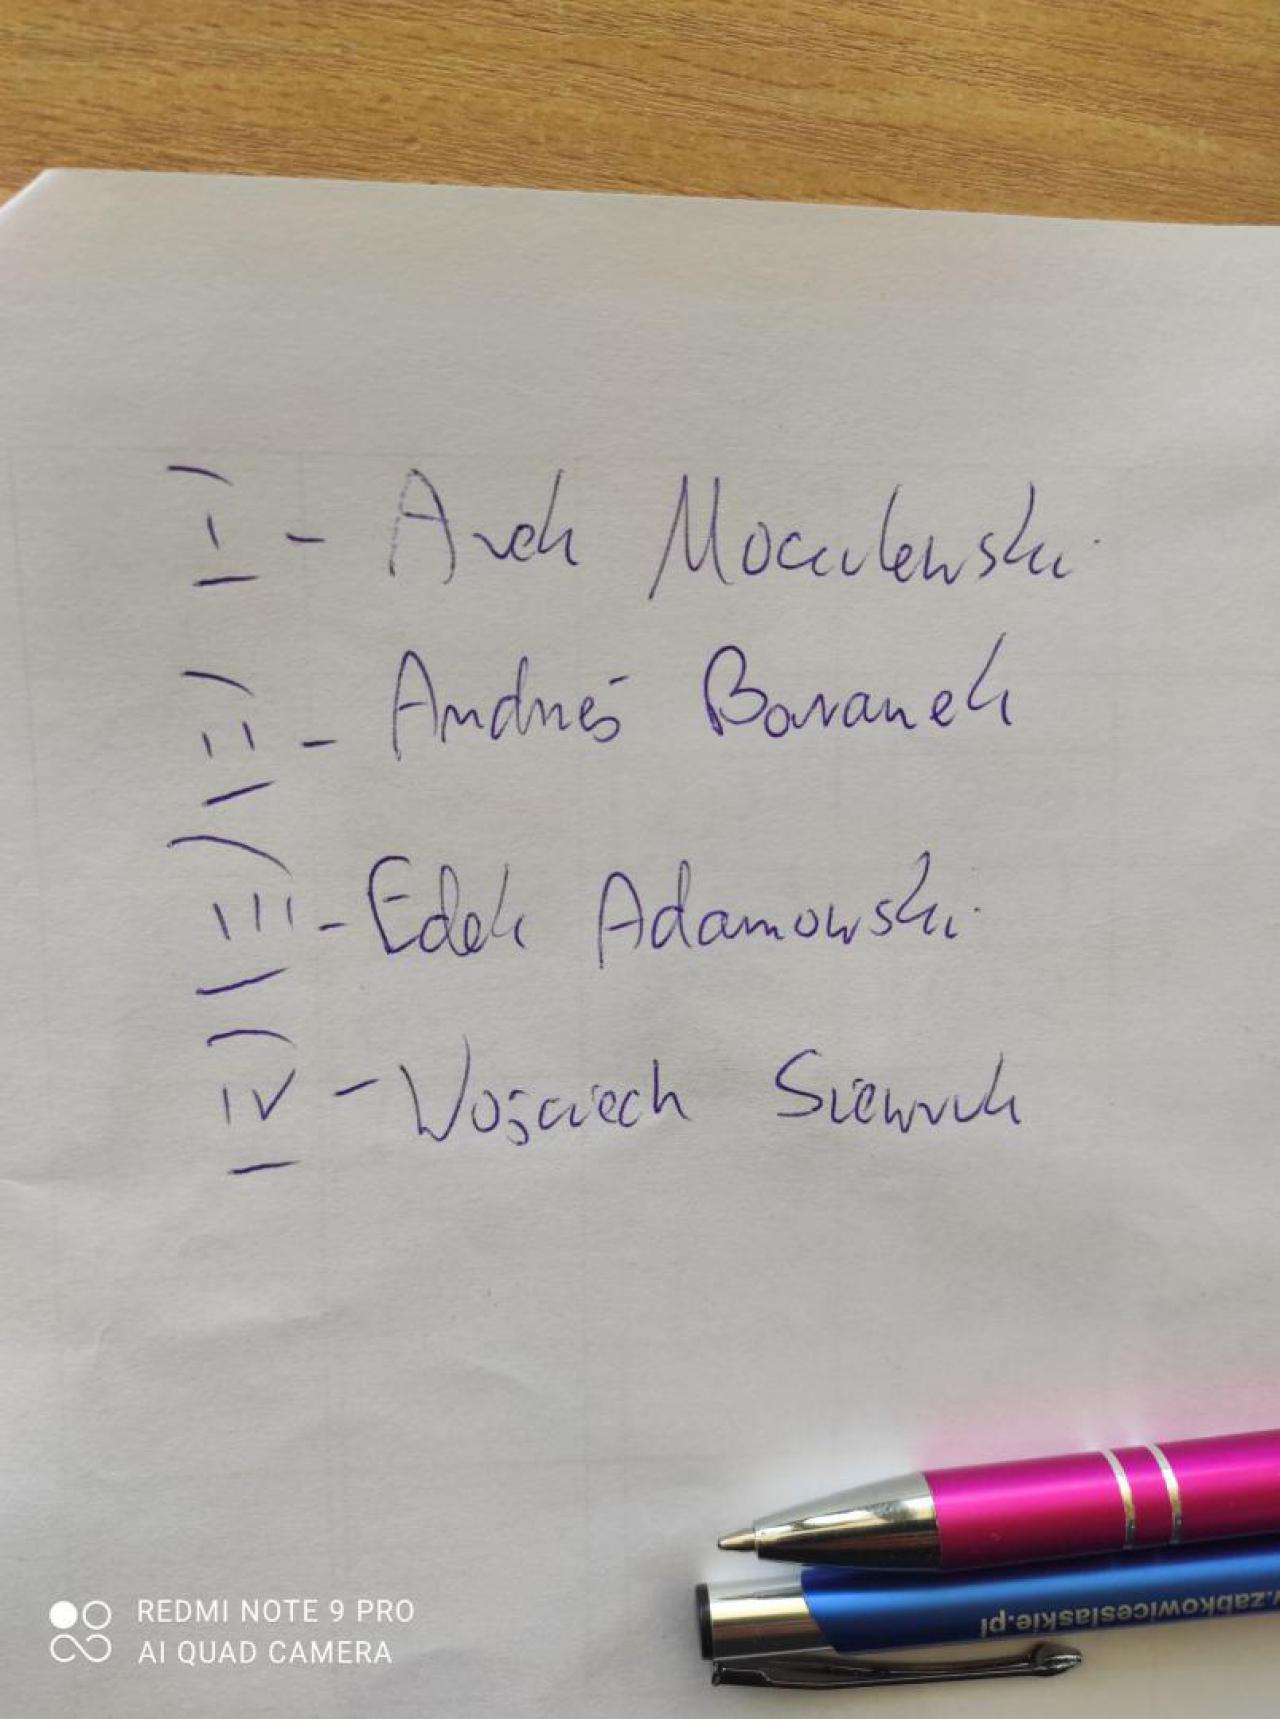 I - Arek Moculewski
II - Andrzej Baranek
III - Edek Adamowski
IV - Wojciech Siewruk
REDMI NOTE 9 PRO
AI QUAD CAMERA
.zabkowiceslaskie.pl